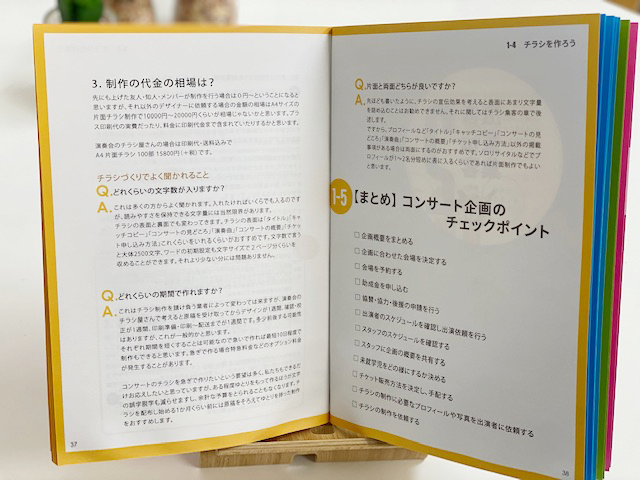 3. 制作の代金の相場は？
先にも上げた友人・知人・メンバーが制作を行う場合は０円〜ということになると
思いますが、それ以外のデザイナーに依頼する場合の金額の相場はA4サイズの
片面チラシ制作で10000円〜20000円くらいが相場じゃないかと思います。プラ
ス印刷代の実費だったり、料金に印刷代金まで含まれていたりするかと思います。
演奏会のチラシ屋さんの場合は印刷代・送料込みで
A4 片面チラシ 100部 15800円（+税）です。
チラシづくりでよく聞かれること
Q. どれくらいの文字数が入りますか？
A. これは多くの方からよく聞かれます。入れたければいくらでも入るのです
が、読みやすさを保持できる文字量には当然限界があります。
チラシの表面と裏面でも変わってきます。チラシの表面は「タイトル」「キャ
ッチコピー」「コンサートの見どころ」「演奏曲」「コンサートの概要」「チケッ
ト申し込み方法」これくらいをいれるくらいがおすすめです。文字数で言う
と大体2500文字、ワードの初期設定も文字サイズで２ページ分くらいを
収めることができます。それより少ない分には問題ありません。
Q. どれくらいの期間で作れますか？
A. これはチラシ制作を請け負う業者によって変わっては来ますが、演奏会の
チラシ屋さんで考えると原稿を受け取ってからデザインが1週間、確認・校
正が1週間、印刷準備・印刷〜配送までが1週間です。多少前後する可能性
はありますが、これが一般的かと思います。
それぞれ期間を短くすることは可能なので急いで作れば最短10日程度で
制作もできると思います。急ぎで作る場合特急料金などのオプション料金
が発生することがあります。
コンサートのチラシを急ぎで作りたいという要望は多く、私たちもできるだ
けお応えしたいと思っていますが、ある程度ゆとりをもって作るほうが文字
の誤字脱字も減らせますし、余計な予算をとられることもなくなります。チ
ラシを配布し始める1か月くらい前には原稿をそろえてゆとりを持った制作
をおすすめします。
37
1-4 チラシを作ろう
Q. 片面と両面どちらが良いですか？
A. 先ほども書いたように、チラシの宣伝効果を考えると表面にあまり文字量
を詰め込むことはお勧めできません。それに関してはチラシ集客の章で後
述します。
ですから、プロフィールなど「タイトル」「キャッチコピー」「コンサートの見
どころ」「演奏曲」「コンサートの概要」「チケット申し込み方法」以外の掲載
事項がある場合は両面にするのがおすすめです。ソロリサイタルなどでプ
ロフィールが1〜2名分短めに表に入るくらいであれば片面制作でもよい
と思います。
1-5
【まとめ】コンサート企画の
チェックポイント
□ 企画概要をまとめる
□ 企画に合わせた会場を決定する
□ 会場を予約する
□ 助成金を申し込む
□ 協賛・協力・後援の申請を行う
□ 出演者のスケジュールを確認し出演依頼を行う
□ スタッフのスケジュールを確認する
□ スタッフに企画の概要を共有する
□ 未就学児をどの様にするか決める
□ チケット販売方法を決定し、手配する
□ チラシの制作に必要なプロフィールや写真を出演者に依頼する
□ チラシの制作を依頼する
38